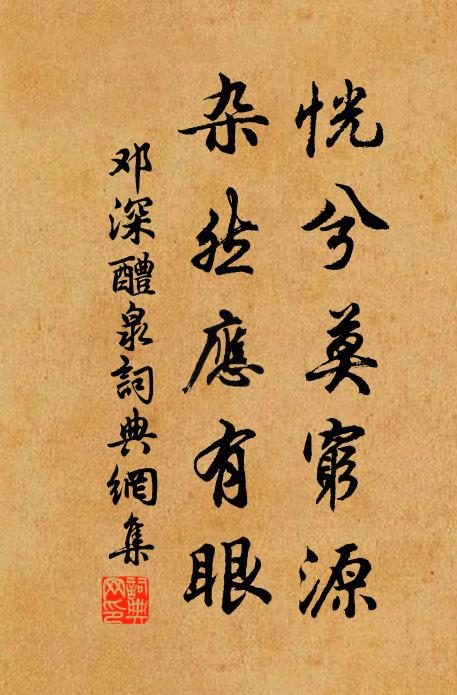 恍兮莫窮源
杂然應有眼
邓深醴泉詞典網集
詞典网印